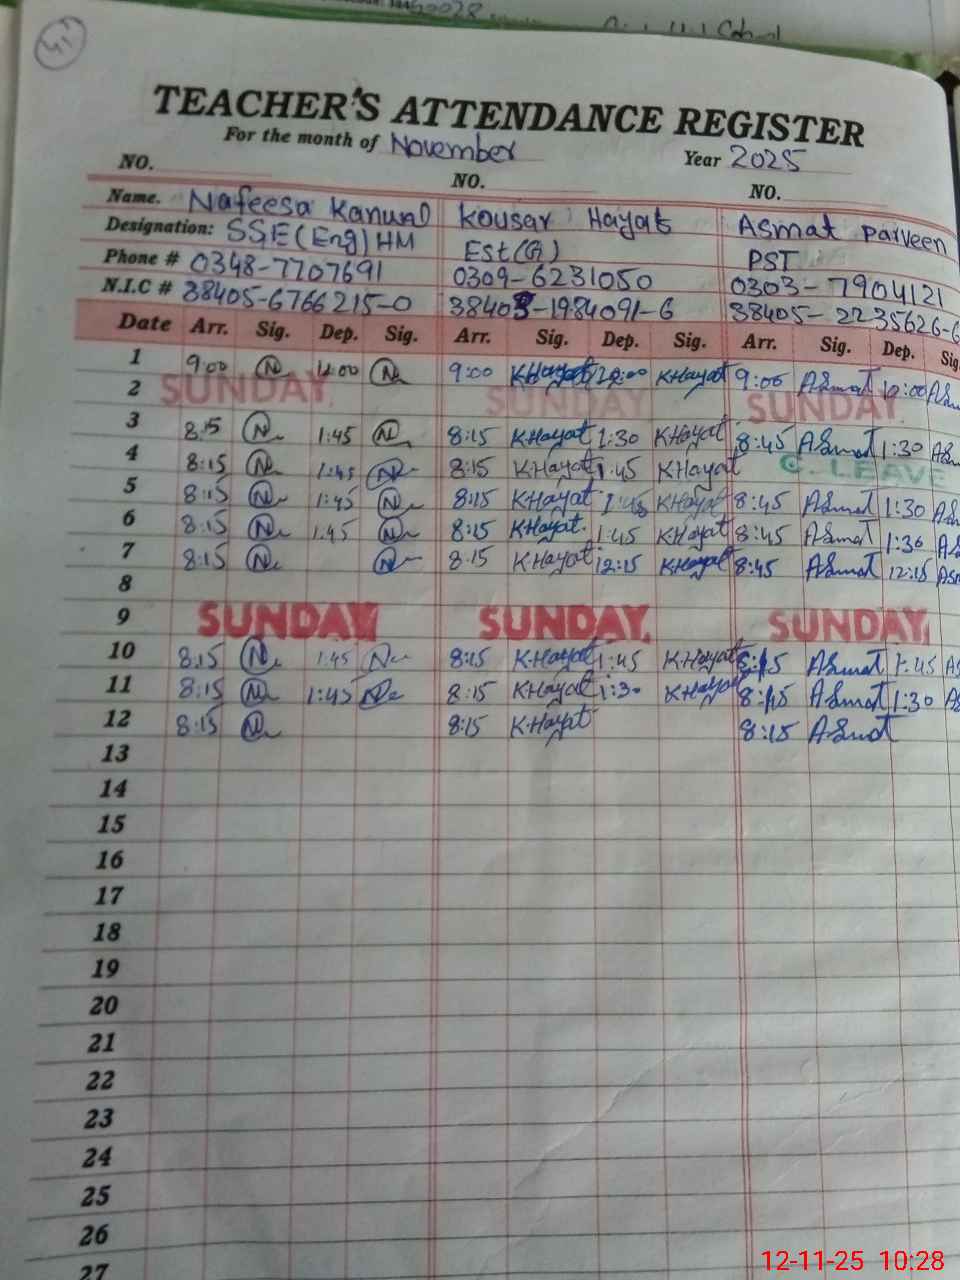 41
TEACHER'S ATTENDANCE REGISTER
For the month of November Year 2025
NO. NO. NO.
Name. Nafeesa Kanwal Kousar Hayat Asmat Parveen
Designation: SSE(Eng)HM Est(G) PST
Phone # 0348-7707691 0309-6231050 0303-7904121
N.I.C # 38405-6766215-0 38403-1984091-6 38405-2235626-6
Date Arr. Sig. Dep. Sig. Arr. Sig. Dep. Sig. Arr. Sig. Dep. Sig
1 9:00 N 12:00 N 9:00 K.Hayat 12:00 K.Hayat 9:00 Asmat 12:00
2 SUNDAY SUNDAY SUNDAY
3 8:15 N 1:45 N 8:15 K.Hayat 1:30 K.Hayat 8:45 Asmat 1:30
4 8:15 N 1:45 N 8:15 K.Hayat 1:45 K.Hayat C. LEAVE
5 8:15 N 1:45 N 8:15 K.Hayat 1:45 K.Hayat 8:45 Asmat 1:30
6 8:15 N 1:45 N 8:15 K.Hayat 1:45 K.Hayat 8:45 Asmat 1:30
7 8:15 N N 8:15 K.Hayat 12:15 K.Hayat 8:45 Asmat 12:15
8
9 SUNDAY SUNDAY SUNDAY
10 8:15 N 1:45 N 8:15 K.Hayat 1:45 K.Hayat 8:15 Asmat 1:45
11 8:15 N 1:45 N 8:15 K.Hayat 1:30 K.Hayat 8:15 Asmat 1:30
12 8:15 N 8:15 K.Hayat 8:15 Asmat
13
14
15
16
17
18
19
20
21
22
23
24
25
26
27
12-11-25 10:28